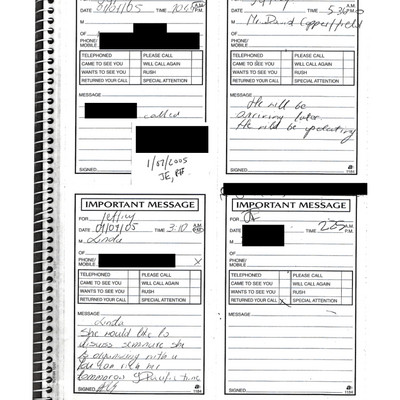 DATE 01/01/05 TIME A.M. P.M.
M
OF
PHONE/
MOBILE
TELEPHONED PLEASE CALL
CAME TO SEE YOU WILL CALL AGAIN
WANTS TO SEE YOU RUSH
RETURNED YOUR CALL SPECIAL ATTENTION
MESSAGE
called
1/02/2005
JE,
SIGNED
TIME 5:36 A.M. P.M.
M Mr. David Copperfield
OF
PHONE/
MOBILE
TELEPHONED PLEASE CALL
CAME TO SEE YOU WILL CALL AGAIN
WANTS TO SEE YOU RUSH
RETURNED YOUR CALL SPECIAL ATTENTION
MESSAGE
He will be
arriving later
He will be
SIGNED
1184
IMPORTANT MESSAGE
FOR Jeffrey
DATE 01/01/05 TIME 3:10 A.M. P.M.
M Linda
OF
PHONE/
MOBILE
TELEPHONED PLEASE CALL
CAME TO SEE YOU WILL CALL AGAIN
WANTS TO SEE YOU RUSH
RETURNED YOUR CALL SPECIAL ATTENTION
MESSAGE
Linda
She would like to
discuss she
is organizing with u
You can
tomorrow 9 Pacific time
SIGNED
1184
IMPORTANT MESSAGE
FOR JE
DATE TIME 2:25 A.M. P.M.
M
OF
PHONE/
MOBILE
TELEPHONED PLEASE CALL
CAME TO SEE YOU WILL CALL AGAIN
WANTS TO SEE YOU RUSH
RETURNED YOUR CALL SPECIAL ATTENTION
MESSAGE
SIGNED
1184